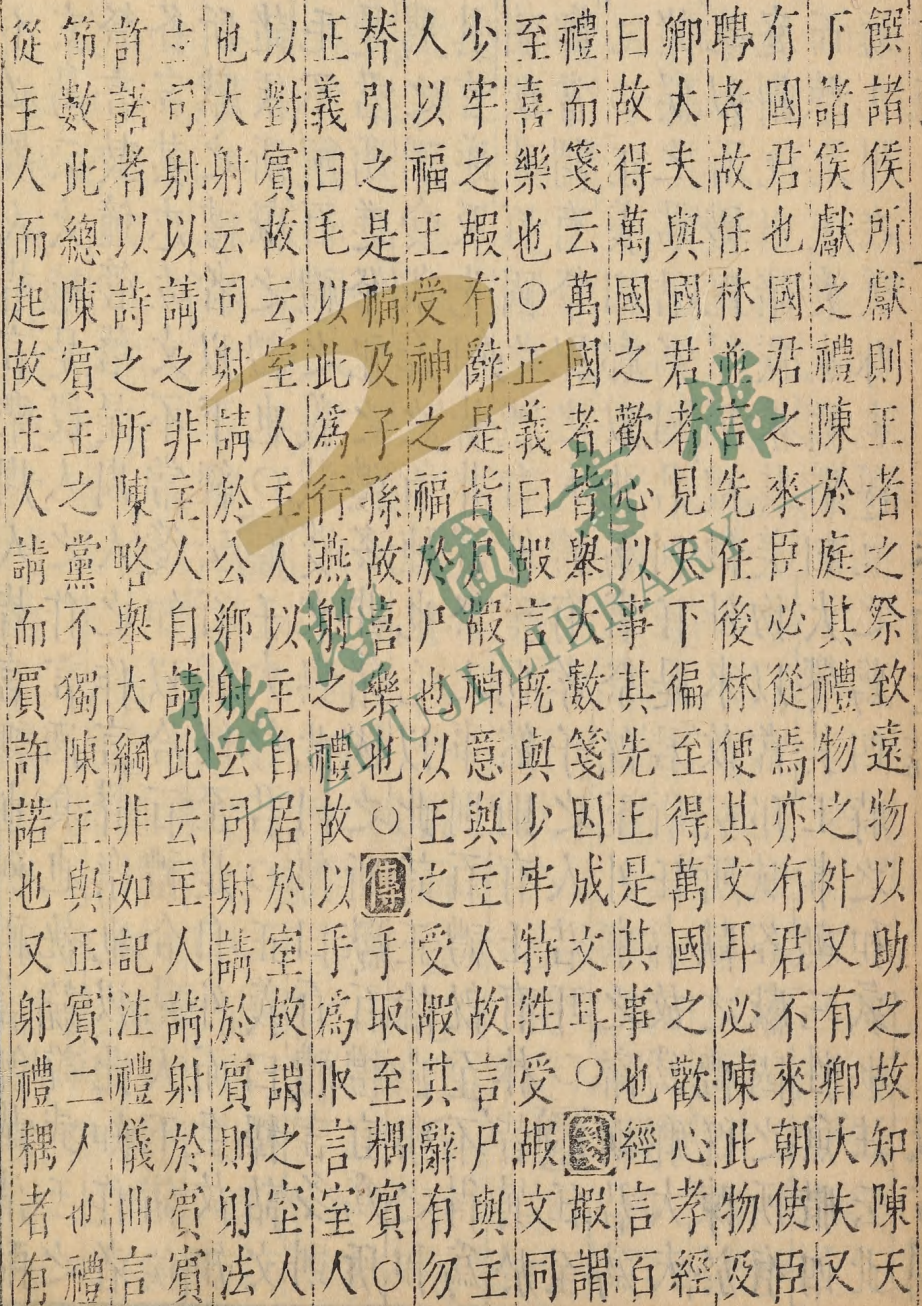 饌諸侯所獻則王者之祭致遠物以助之故知陳天
下諸侯獻之禮陳於庭其禮物之外又有卿大夫又
有國君也國君之來臣必從焉亦有君不來朝使臣
聘者故任林並言先任後林便其文耳必陳此物及
卿大夫與國君者見天下徧至得萬國之歡心孝經
曰故得萬國之歡心以事其先王是其事也經言百
禮而箋云萬國者皆舉大數箋因成文耳○箋嘏謂
至喜樂也○正義曰嘏言旣與少牢特牲受嘏文同
少牢之嘏有辭是皆尸嘏神意與主人故言尸與主
人以福王受神之福於尸也以王之受嘏其辭有勿
替引之是福及子孫故喜樂也○傳手取至耦賓○
正義曰毛以此爲行燕射之禮故以手爲取言室人
以對賓故云室人主人以主自居於室故謂之室人
也大射云司射請於公鄉射云司射請於賓則射法
立司射以請之非主人自請此云主人請射於賓賓
許諾者以詩之所陳略舉大綱非如記注禮儀曲言
節數此總陳賓主之黨不獨陳主與正賓二人也禮
從主人而起故主人請而賓許諾也又射禮耦者有
諸暨圖書館
ZHUJI LIBRARY